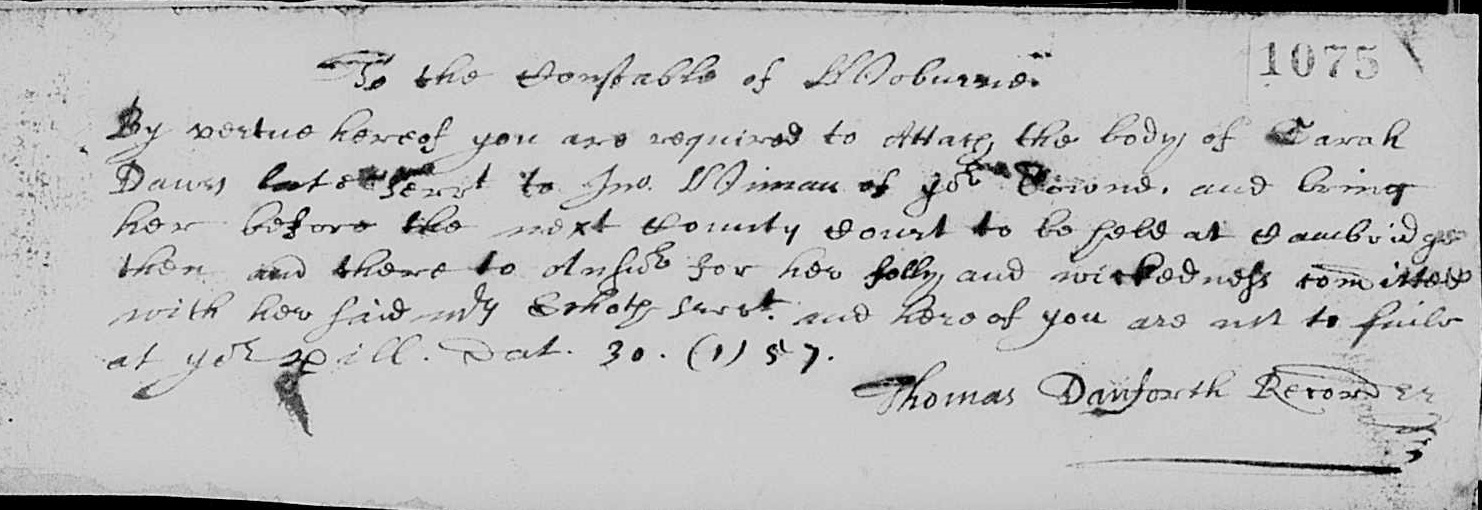 1075
To the Constable of Woburne.
By vertue hereof you are required to Attach the body of Sarah
Dawes late Servt to Jno. Wiman of yor Towne. and bring
her before the next County Court to be held at Cambridge
then and there to Answr for her folly and wickedness comitted
with her said Scotch servt. and hereof you are not to faile
at yor pill. Dat. 30. (1) 57.
Thomas Danforth Recorder